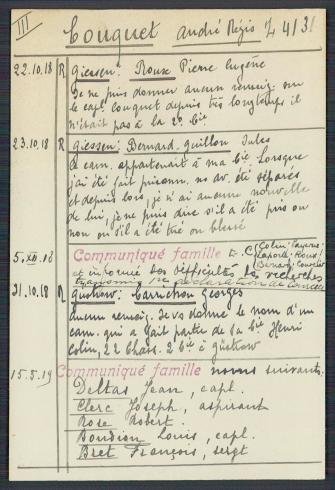 III
Couquet André Régis Z 4/31
22.10.18 R Giessen: Roux Pierre Eugène
Je ne puis donner aucun renseig. sur
le capl Couquet depuis très longtemps il
n'était pas à la 2e Cie
23.10.18 R Giessen: Bernard-Guillon Jules
Ce cam. appartenait à ma Cie. Lorsque
j'ai été fait prisonn. ns av. été séparés
et depuis lors, je n'ai aucune nouvelle
de lui, je ne puis dire s'il a été pris ou
non ou s'il a été tué ou blessé
5.XII.18 Communiqué famille Colin
Laporte Roux
Bernard
et informé des difficultés de recherches
31.10.18 R Güstrow: Carrichon Georges
Aucun renseig. Je vs donne le nom d'un
cam. qui a fait partie de la Cie Henri
Colin, 22 Chass. 2e Cie à Güstrow
15.5.19 Communiqué famille noms suivants.
Deltas Jean, capl.
Clerc Joseph, aspirant
Rose Robert.
Boudion Louis, capl.
Bret François, sergt